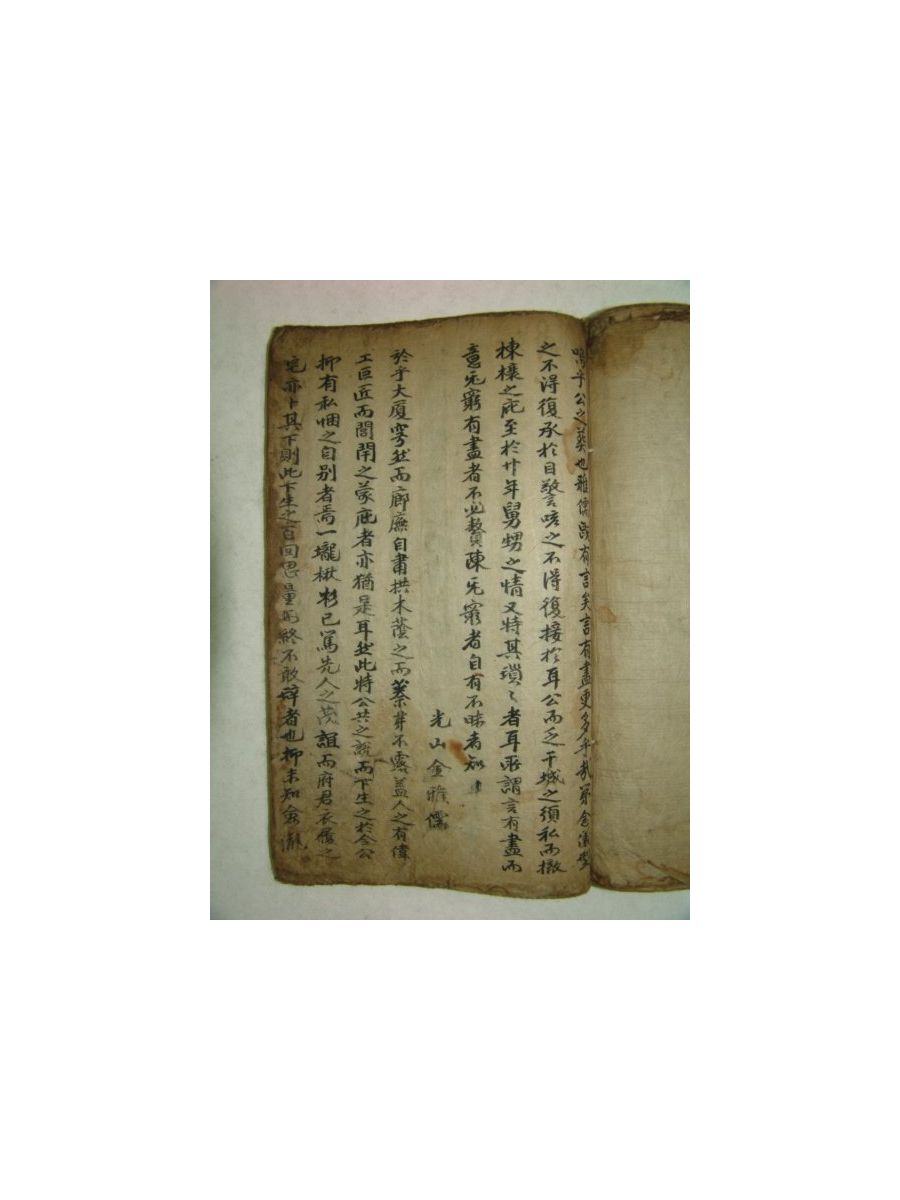 嗚乎公之葬也雅儒旣有言矣言有盡更多乎哉第念儀型
之不得復承於目謦咳之不得復接於耳公而乏干城之須私而撤
棟樑之庇至於卄年舅甥之情又特其瑣〻者耳所謂言有盡而
意旡窮有盡者不必贅陳旡窮者自有不昧者知
光山金雅儒
於乎大厦穹然而廊廡自甫拱木蔭之而蓁芽不露盖人之有偉
工巨匠而閭閈之蒙庇者亦猶是耳然此特公共之說而下生之於令公
抑有私悃之自別者焉一壠楸杉已篤先人之茂誼而府君衣履之
宅亦卜其下則此下生之百回思量而終不敢辞者也抑未知